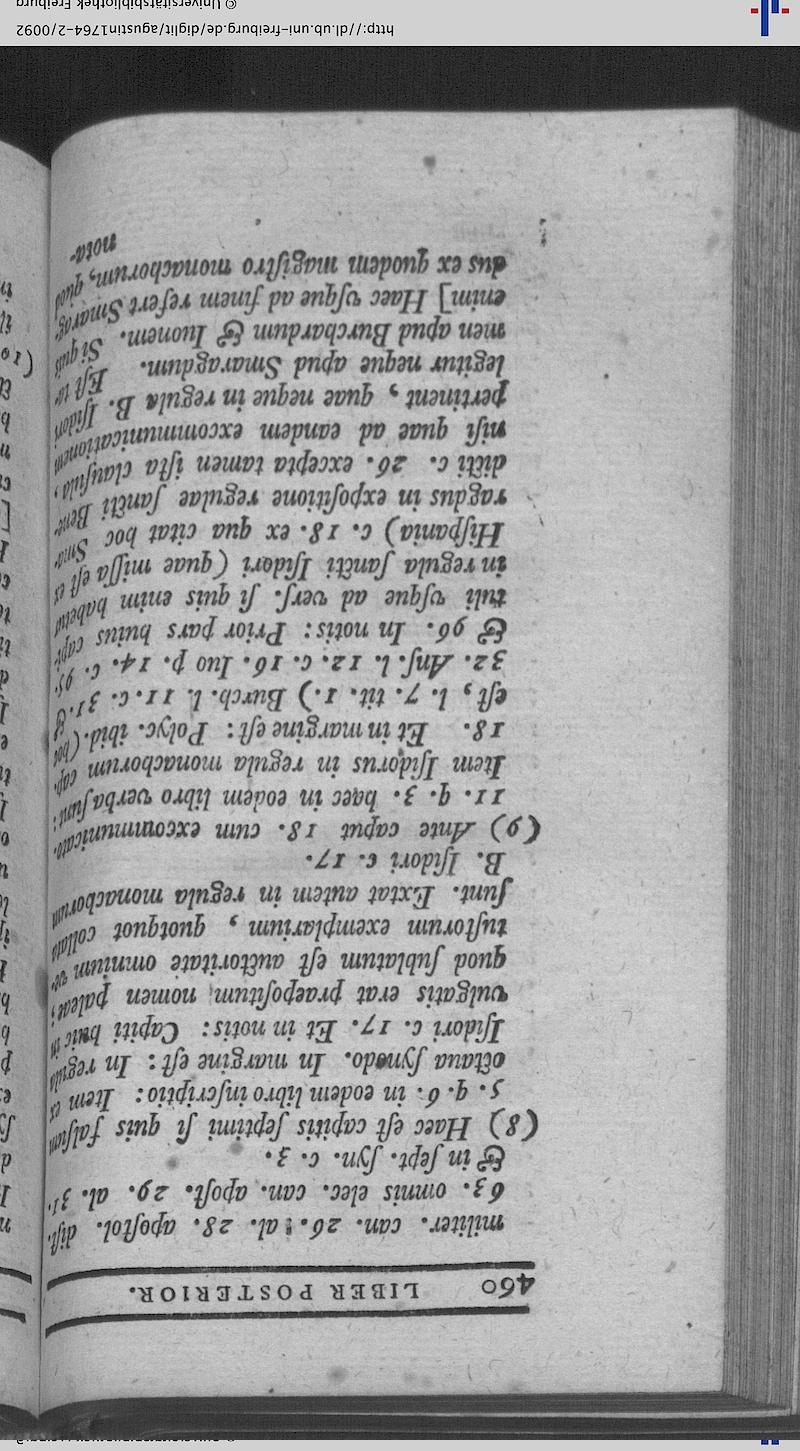 460 LIBER POSTERIOR.
militer. can. 26. al. 28. apostol. dist.
63. omnis elec. can. apost. 29. al. 31.
& in sept. syn. c. 3.
(8) Haec est capitis septimi si quis falsum
5. q. 6. in eodem libro inscriptio: Item ex
octaua synodo. In margine est: In regula
Isidori c. 17. Et in notis: Capiti huic in
vulgatis erat praepositum nomen paleae;
quod sublatum est auctoritate omnium ve-
tustorum exemplarium, quotquot collata
sunt. Extat autem in regula monachorum
B. Isidori c. 17.
(9) Ante caput 18. cum excommunicato.
11. q. 3. haec in eodem libro verba sunt:
Item Isidorus in regula monachorum cap.
18. Et in margine est: Polyc. ibid. (hoc
est, l. 7. tit. 1.) Burch. l. 11. c. 31. &
32. Ans. l. 12. c. 16. Iuo p. 14. c. 95.
& 96. In notis: Prior pars huius capi-
tuli vsque ad vers. si quis enim habetur
in regula sancti Isidori (quae missa est ex
Hispania) c. 18. ex qua citat hoc Sma-
ragdus in expositione regulae sancti Bene-
dicti c. 26. excepta tamen ista clausula,
nisi quae ad eandem excommunicationem
pertinent, quae neque in regula B. Isidori
legitur neque apud Smaragdum. Est ta-
men apud Burchardum & Iuonem. Si quis
enim] Haec vsque ad finem refert Smarag-
dus ex quodem magistro monachorum, quod
nota-
http://dl.ub.uni-freiburg.de/diglit/augustin1764-2/0092
© Universitätsbibliothek Freiburg